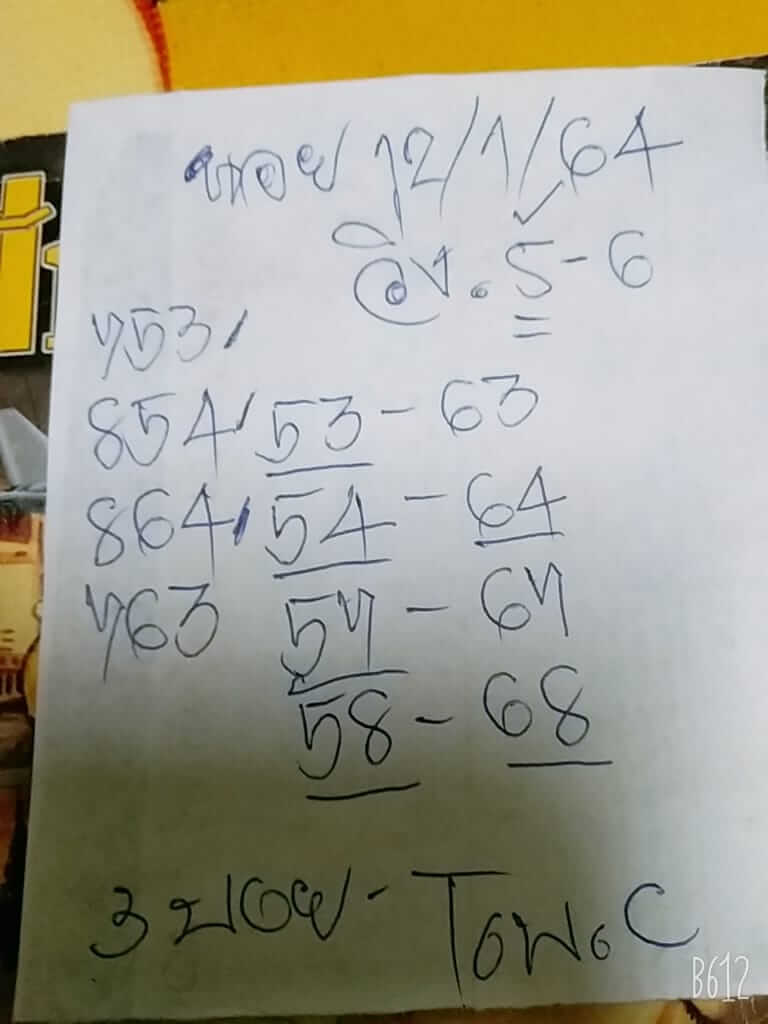 หอย 12/1/64
วิ่ง. 5-6
753/
854/ 53-63
864/ 54-64
763 57-67
58-68
B612